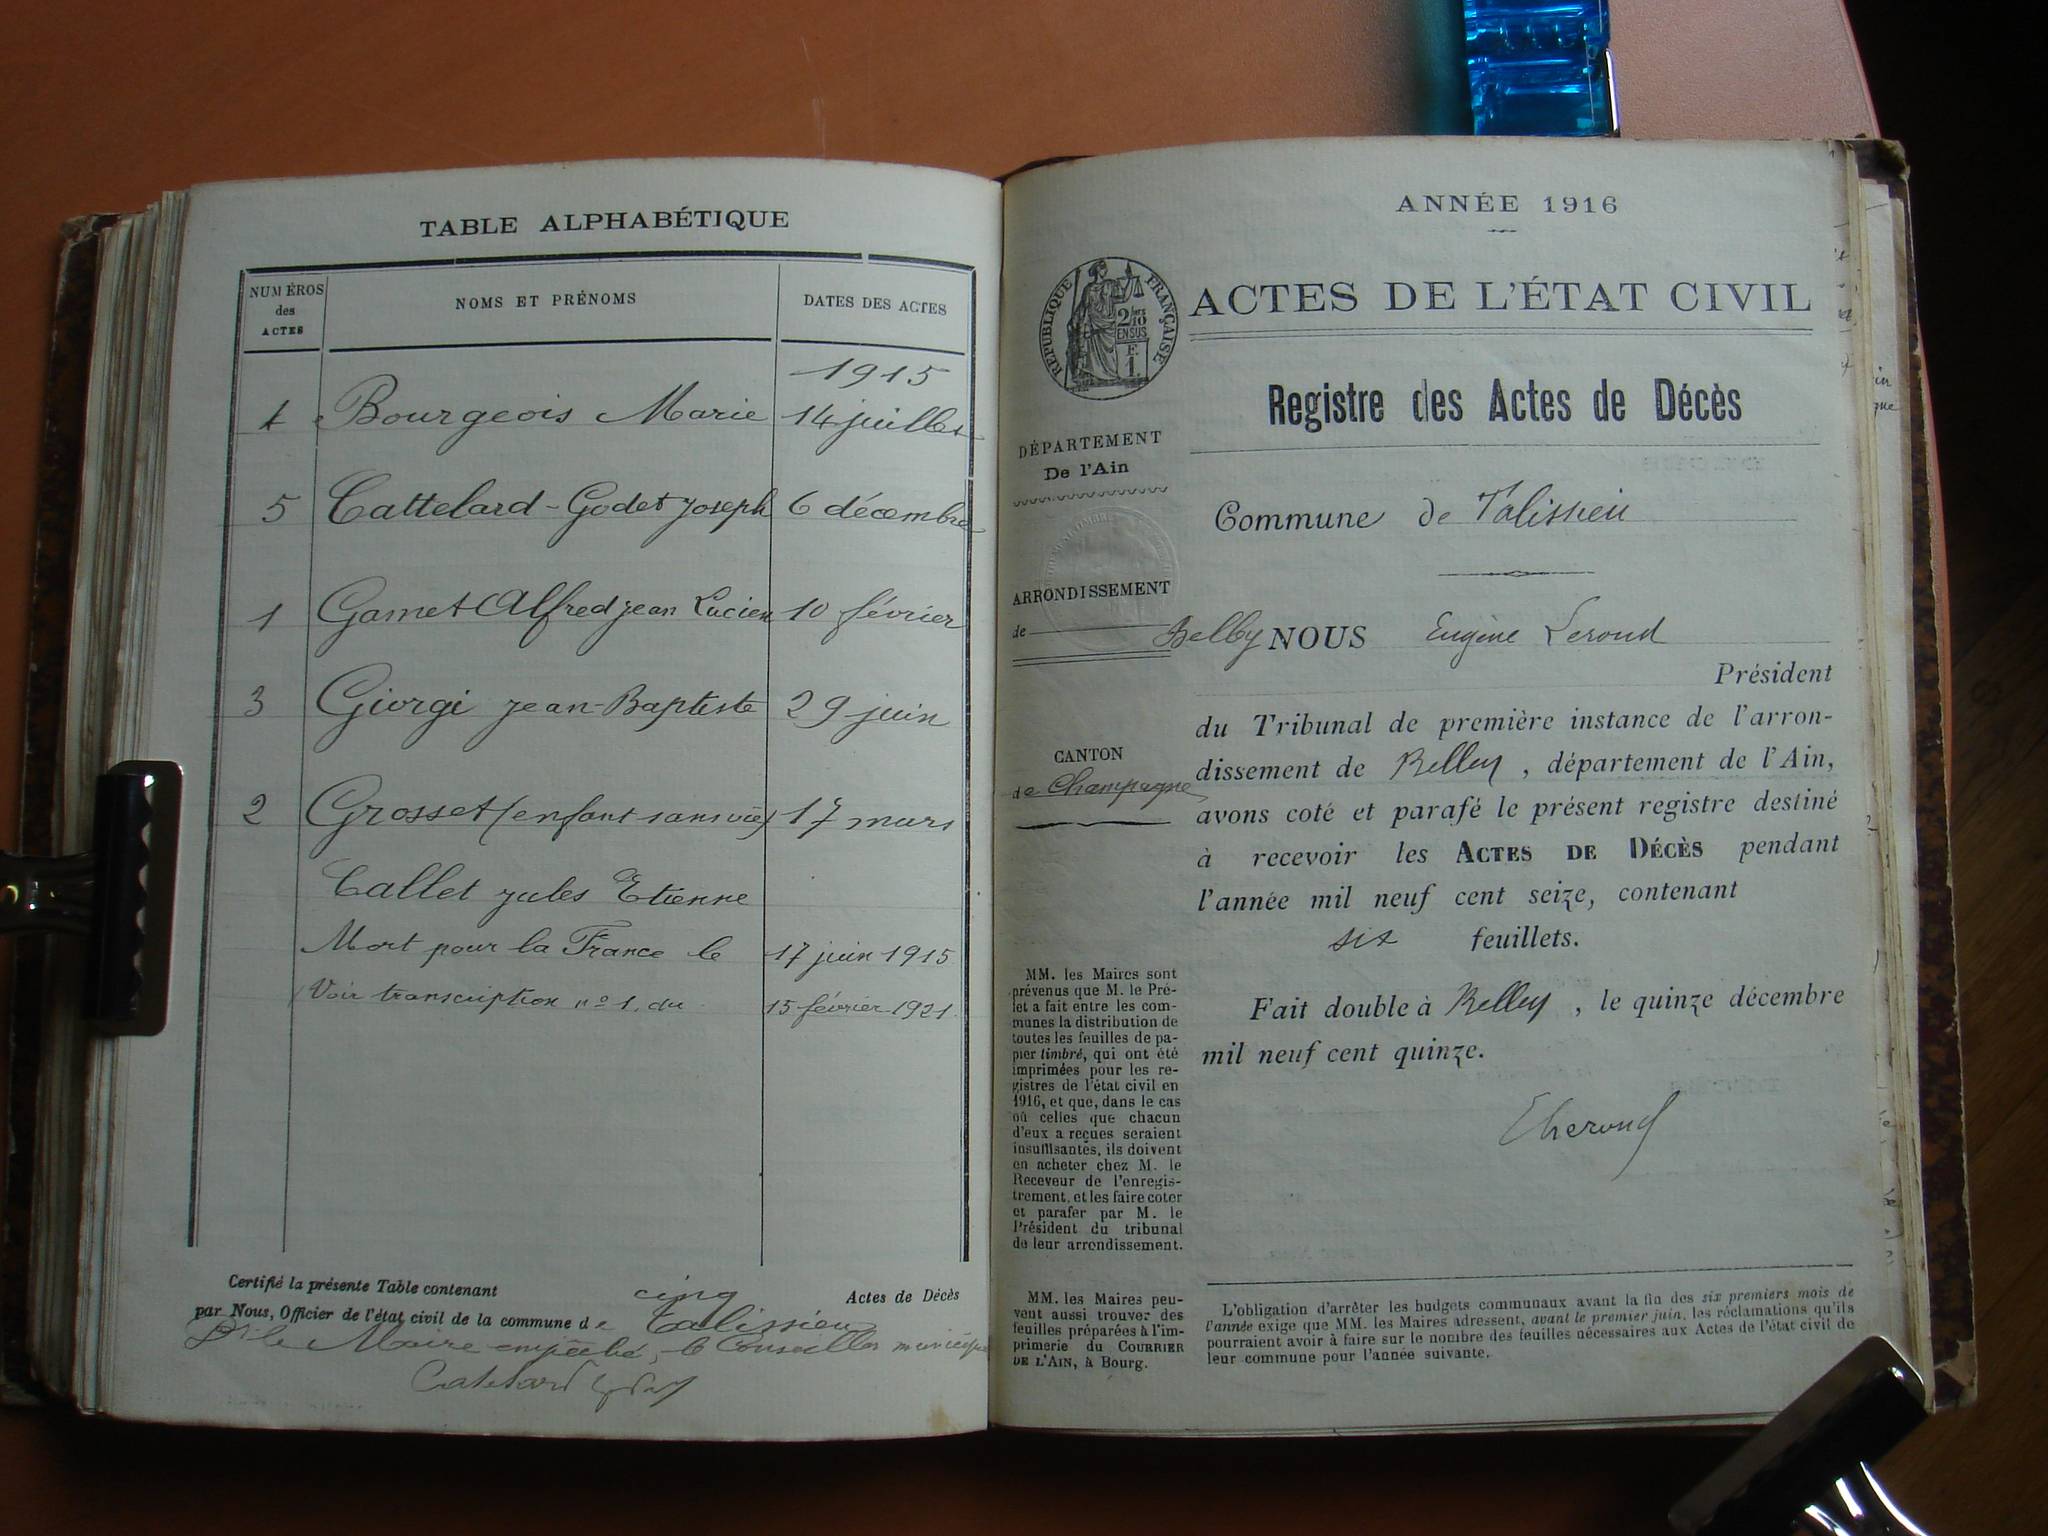 TABLE ALPHABÉTIQUE
NUMÉROS des ACTES
NOMS ET PRÉNOMS
DATES DES ACTES
1915
4 Bourgeois Marie 14 juillet
5 Cattelard-Godet Joseph 6 décembre
1 Gamet Alfred Jean Lucien 10 février
3 Giorgi Jean-Baptiste 29 juin
2 Grosset (enfant sans vie) 17 mars
Callet Jules Etienne
Mort pour la France le 17 juin 1915
Voir transcription nº 1. du 15 février 1921.
Certifié la présente Table contenant cinq Actes de Décès
par Nous, Officier de l'état civil de la commune de Talissieu
le Maire empêché, le Conseiller municipal
ANNÉE 1916
RÉPUBLIQUE FRANÇAISE
2/10
EN SUS
E.
1.
ACTES DE L'ÉTAT CIVIL
Registre des Actes de Décès
DÉPARTEMENT
De l'Ain
Commune de Talissieu
ARRONDISSEMENT
de Belley
NOUS Eugène Leroud
Président
du Tribunal de première instance de l'arron-
dissement de Belley, département de l'Ain,
avons coté et parafé le présent registre destiné
à recevoir les ACTES DE DÉCÈS pendant
l'année mil neuf cent seize, contenant
six feuillets.
Fait double à Belley, le quinze décembre
mil neuf cent quinze.
CANTON
de Champagne
MM. les Maires sont
prévenus que M. le Pré-
fet a fait entre les com-
munes la distribution de
toutes les feuilles de pa-
pier timbré, qui ont été
imprimées pour les re-
gistres de l'état civil en
1916, et que, dans le cas
où celles que chacun
d'eux a reçues seraient
insuffisantes, ils doivent
en acheter chez M. le
Receveur de l'enregis-
trement, et les faire coter
et parafer par M. le
Président du tribunal
de leur arrondissement.
MM. les Maires peu-
vent aussi trouver des
feuilles préparées à l'im-
primerie du COURRIER
DE L'AIN, à Bourg.
L'obligation d'arrêter les budgets communaux avant la fin des six premiers mois de
l'année exige que MM. les Maires adressent, avant le premier juin, les réclamations qu'ils
pourraient avoir à faire sur le nombre des feuilles nécessaires aux Actes de l'état civil de
leur commune pour l'année suivante.